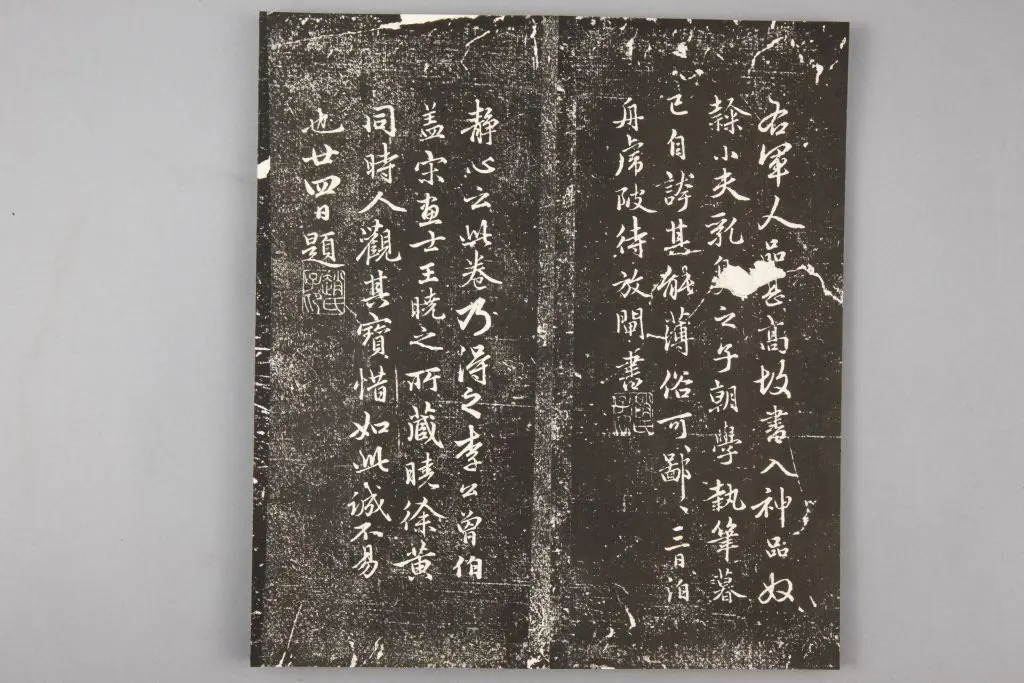 右軍人品甚高故書入神品奴
隸小夫乳臭之子朝學執筆暮
已自誇其能薄俗可〻鄙〻三日泊
舟虎陂待放閘書
趙氏子昂
靜心云此卷乃得之李公曾伯
蓋宋畫士王曉之所藏曉徐黃
同時人觀其寶惜如此誠不易
也廿四日題
趙氏子昂